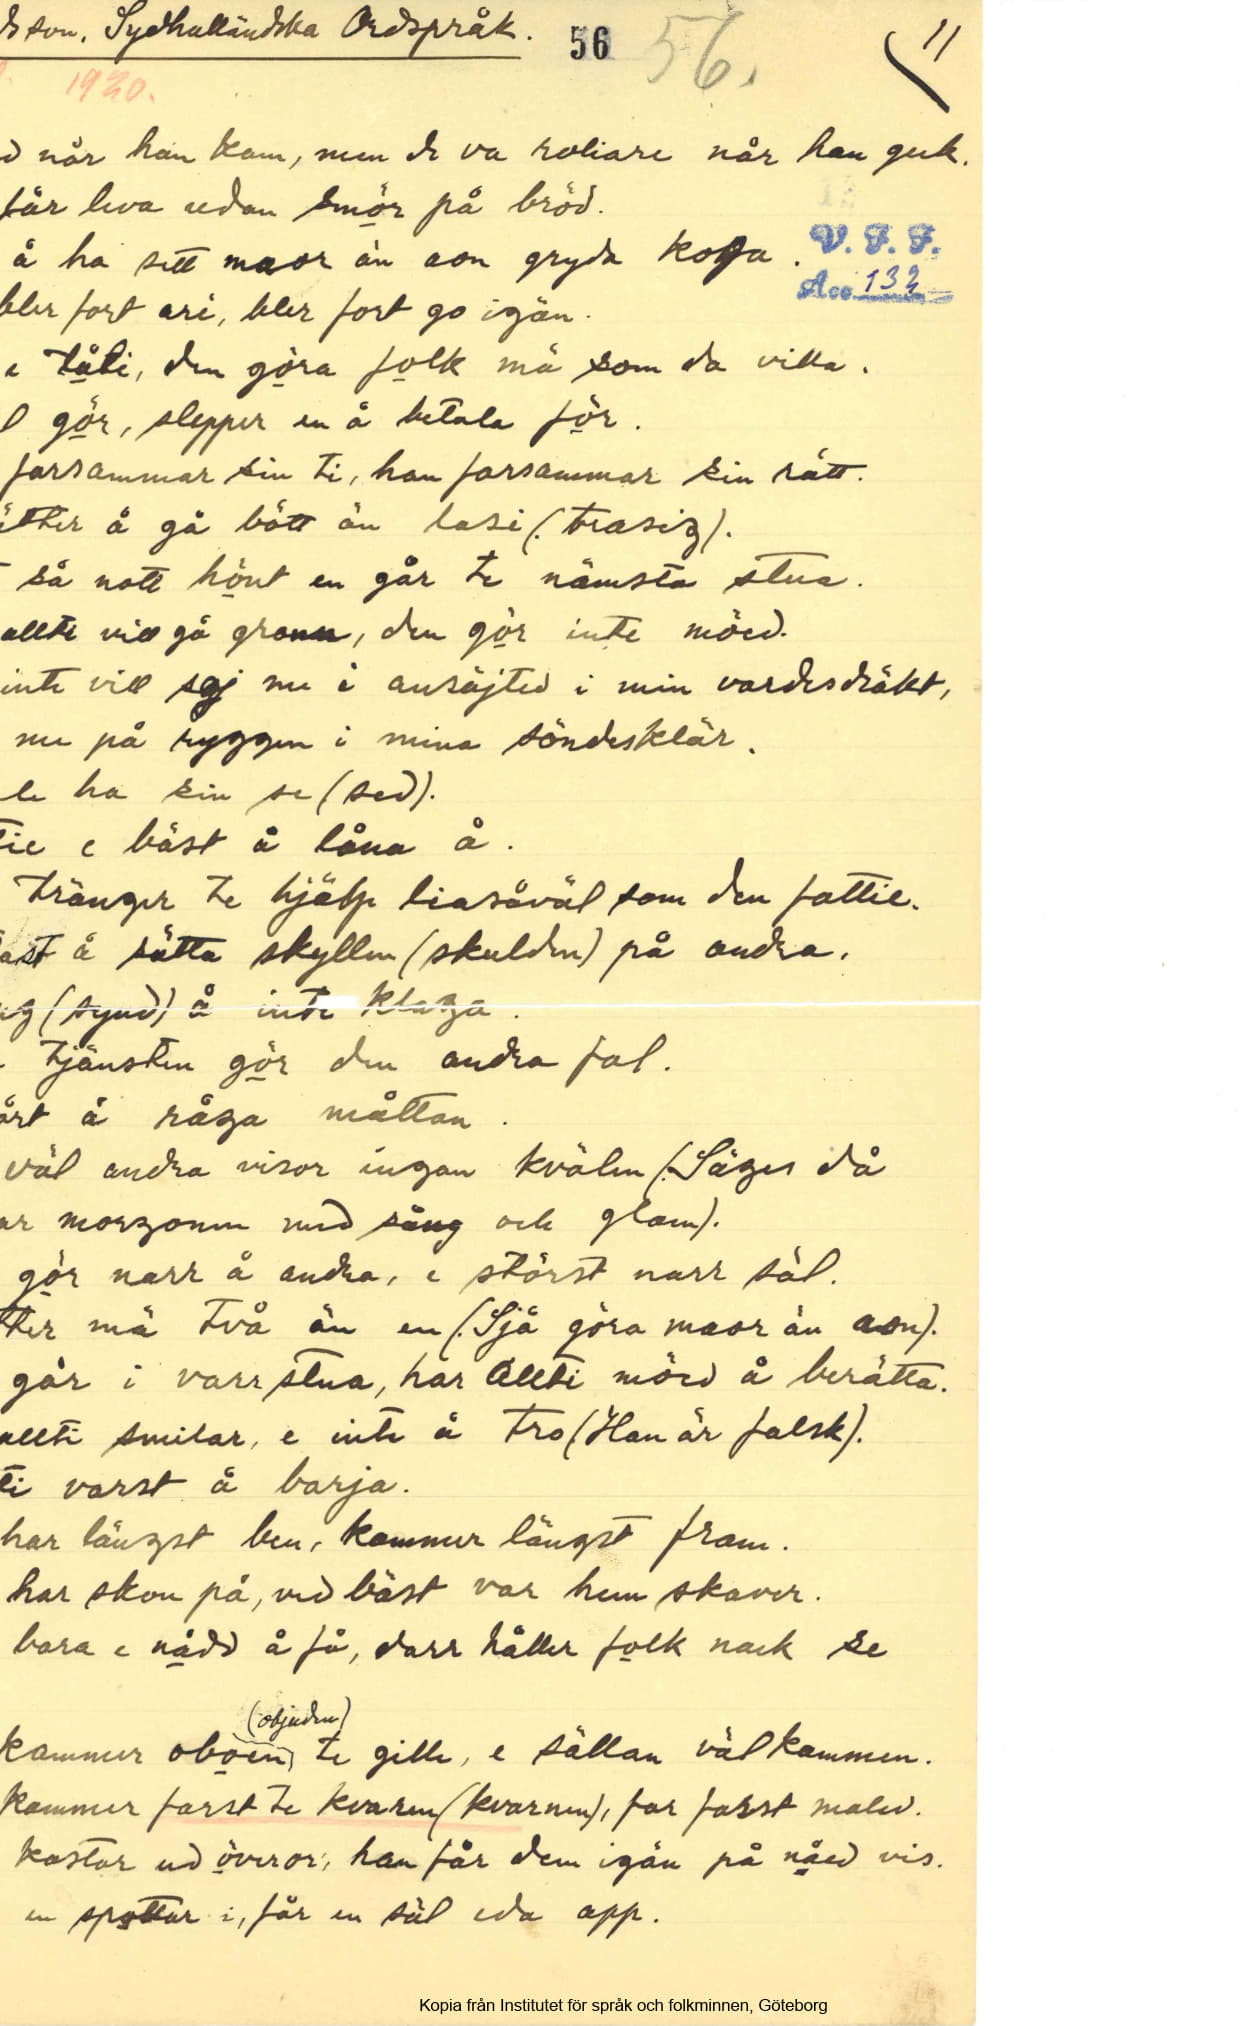 Sydhalländska Ordspråk. 56 56. 11
1920.
når han kam, men de va roliare når han gick.
får leva udan smör på bröd.
å ha sett maor än aon gryda koga. V. F. F.
Acc 132
bler fort ari, bler fort go igän.
e tåli, den göra folk mä som da villa.
gör, slepper en å betala för.
forsammar sin ti, han forsammar sin rätt.
å gå bött än lasi (: trasig).
så nott hönt en går te nämsta stua.
allti vill gå grann, den gör inte möed.
inte vill sej me i ansäjted i min vardesdräkt,
me på ryggen i mina söndesklär.
ha sin se (sed).
e bäst å låna å.
tränger te hjälp liasåväl som den fattie.
å sätta skyllen (skulden) på andra.
(synd) å inte klaga.
tjänsten gör den andra fal.
å råga måttan.
väl andra visor ingan kvälen (: Säges då
morgonen med sång och glam).
gör narr å andra, e störst narr säl.
mä två än en (: Sjå göra maor än aon).
går i varr stua, har allti möed å berätta.
allti smilar, e inte å tro (Han är falsk).
varst å barja.
har längst ben, kammer längst fram.
har skon på, ved bäst var hem skaver.
bara e nådd å få, darr håller folk nack se
(objuden)
kammer oboen te gille, e sällan välkammen.
kammer farst te kvaren (kvarnen), far farst maled.
kastar ud överor, han får dem igän på nåed vis.
en spottar i, får en säl eda app.
Kopia från Institutet för språk och folkminnen, Göteborg